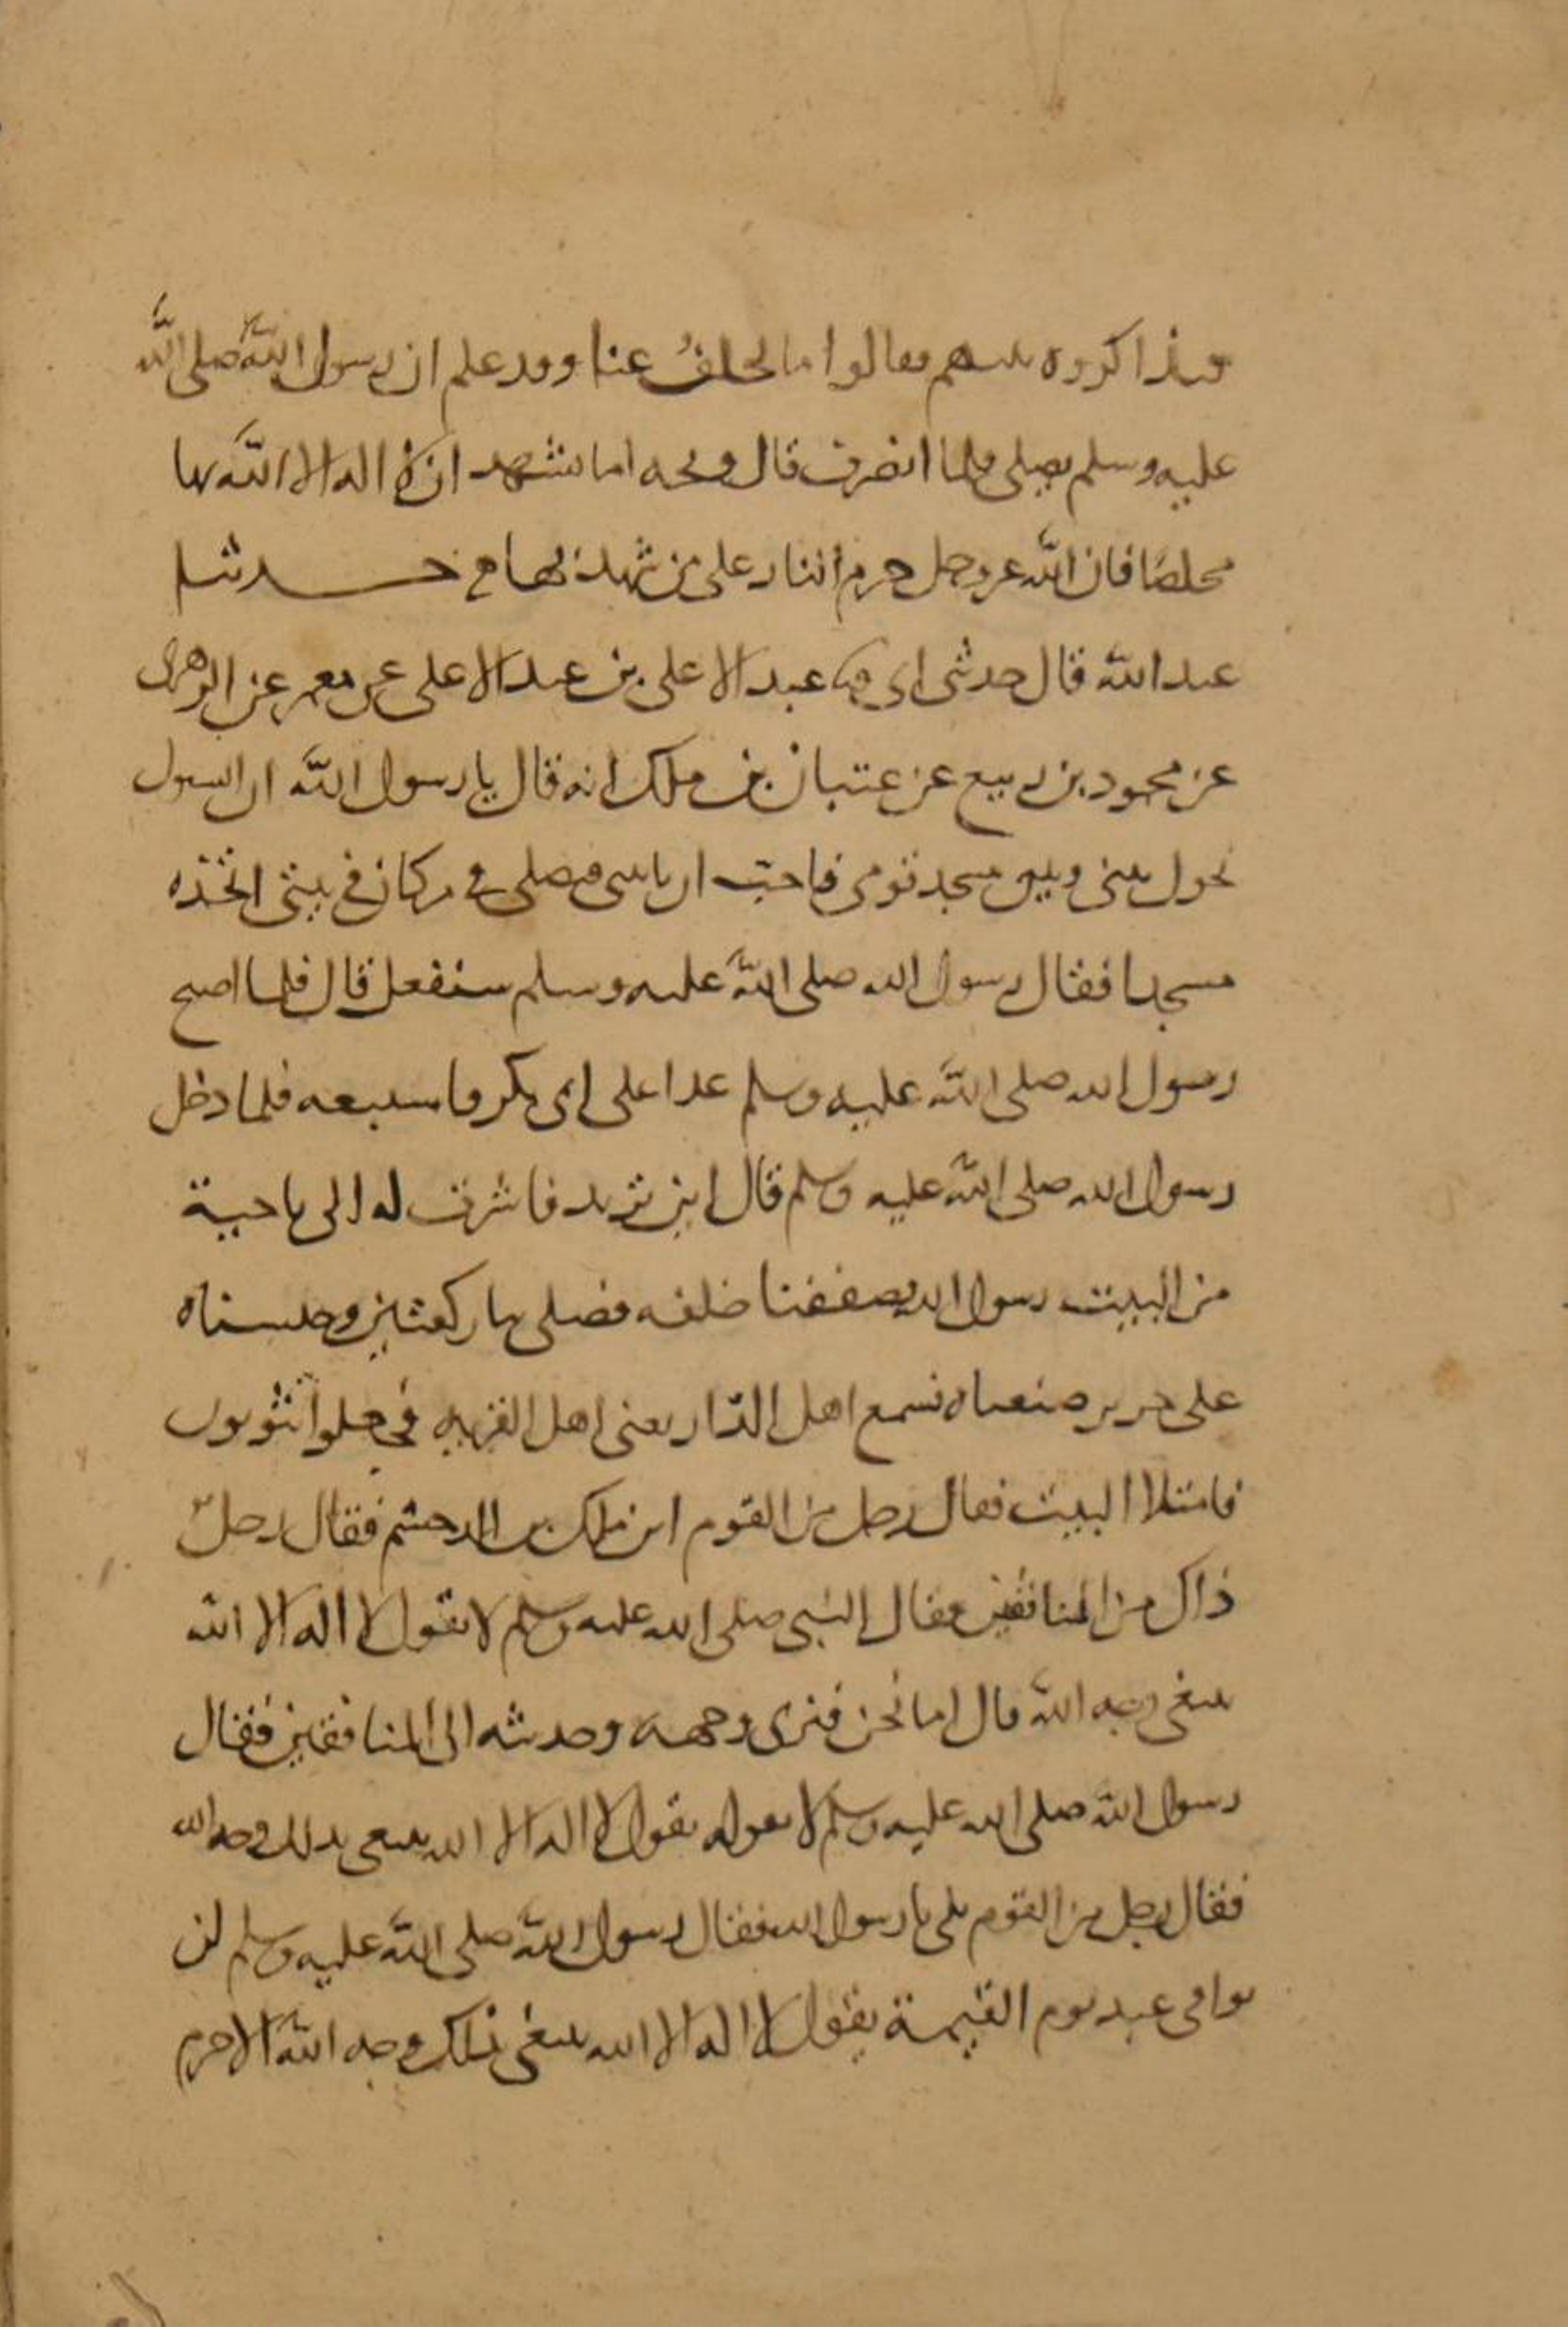 فتذاكروه بينهم فقالوا ما تخلف عنا وقد علم ان رسول الله صلى الله
عليه وسلم يصلي فلما انصرف قال ويحه اما شهد ان لا اله الا الله بها
مخلصا فان الله عز وجل حرم النار على من شهد بها حدثنا
عبد الله قال حدثني ابي عبد الاعلى بن عبد الاعلى عن معمر عن الزهري
عن محمود بن ربيع عن عتبان بن ملك انه قال يا رسول الله ان السيول
تحول بيني وبين مسجد قومي فاحب ان تاتيني فتصلي في مكان في بيتي اتخذه
مسجدا فقال رسول الله صلى الله عليه وسلم سنفعل قال فلما اصبح
رسول الله صلى الله عليه وسلم غدا على ابي بكر فاستتبعه فلما دخل
رسول الله صلى الله عليه وسلم قال اين تريد فاشرت له الى ناحية
من البيت رسول الله فصففنا خلفه فصلى بنا ركعتين وحبسناه
على خزير صنعناه فسمع اهل الدار يعني اهل القرية فجعلوا يثوبون
فامتلا البيت فقال رجل من القوم اين ملك بن الدخشم فقال رجل
ذاك من المنافقين فقال النبي صلى الله عليه وسلم لا تقول لا اله الا الله
يبتغي وجه الله قال اما نحن فنرى وجهه وحديثه الى المنافقين فقال
رسول الله صلى الله عليه وسلم لا تقوله يقول لا اله الا الله يبتغي بذلك وجه الله
فقال رجل من القوم بلى يا رسول الله فقال رسول الله صلى الله عليه وسلم لن
يوافي عبد يوم القيمة يقول لا اله الا الله يبتغي بذلك وجه الله الا حرم